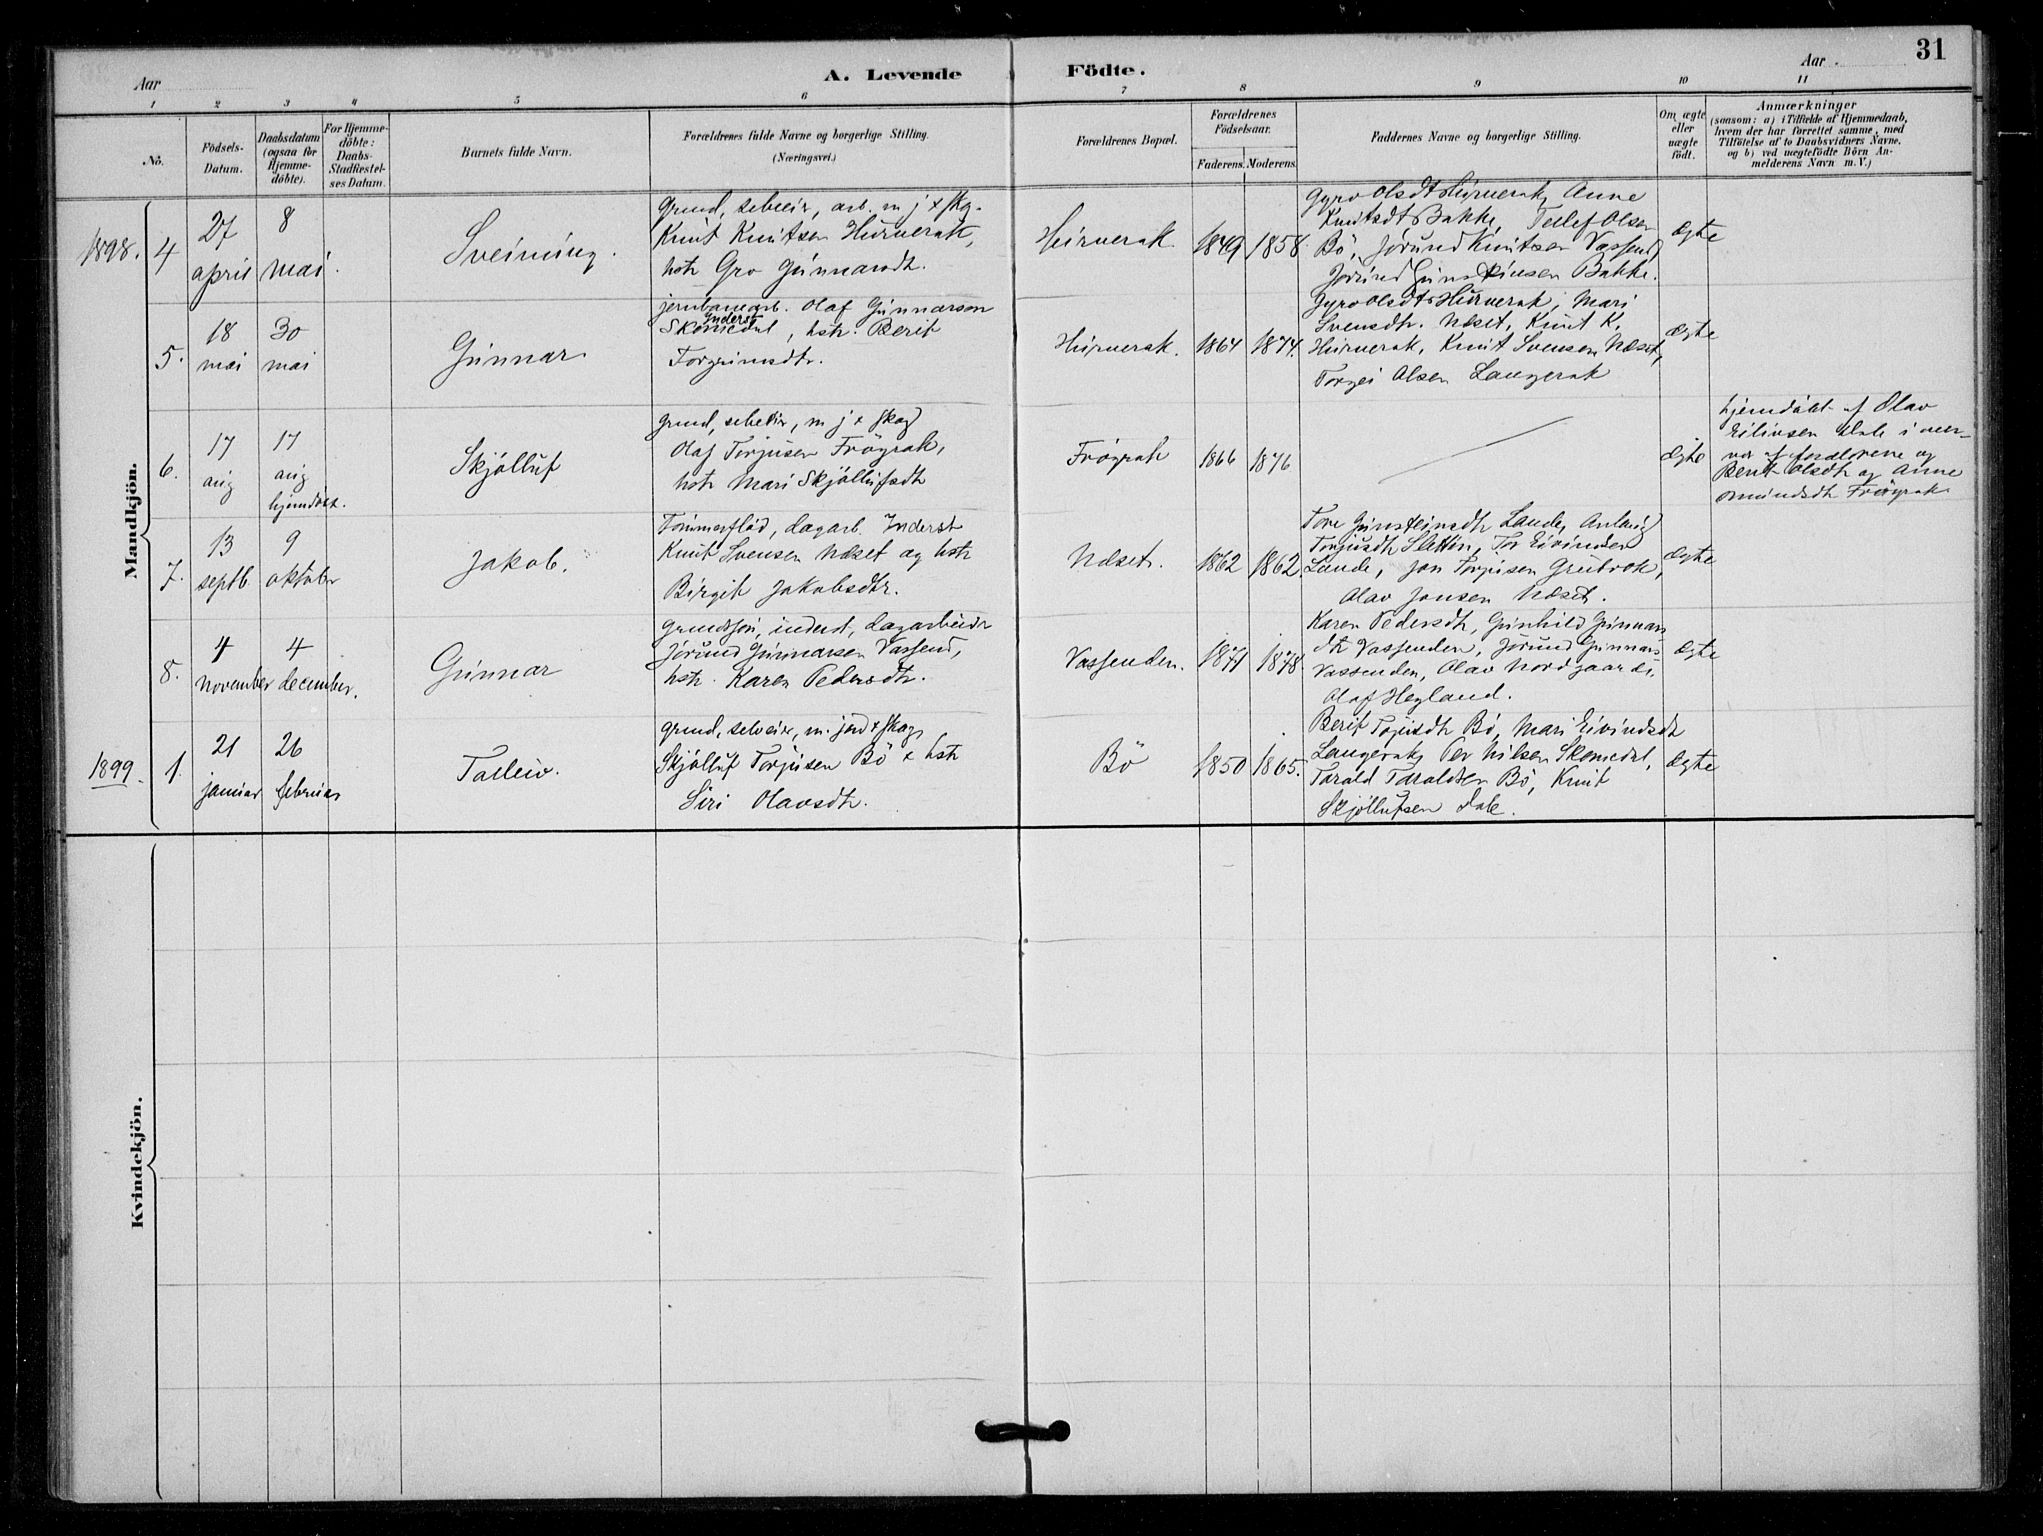 31
Aar
A. Levende Födte.
Aar
1 2 3 4 5 6 7 8 9 10 11
No.
Födsels-Datum.
Daabsdatum (ogsaa for Hjemme-döbte).
For Hjemme-döbte: Daabs-Stadfæstel-ses Datum.
Barnets fulde Navn.
Forældrenes fulde Navne og borgerlige Stilling.
(Næringsvei.)
Forældrenes Bopæl.
Forældrenes Födselsaar.
Faderens. Moderens.
Faddernes Navne og borgerlige Stilling.
Om ægte eller uægte födt.
Anmærkninger
(saasom: a) i Tilfælde af Hjemmedaab,
hvem der har forrettet samme, med
Tilföielse af to Daabsvidners Navne,
og b) ved uægtefödte Börn An-
melderens Navn m. V.)
Mandkjön.
1898. 4
27 april
8 mai.
Sveinung.
Grund, selveier, arb. m j + skg.
Knut Knutsen Hurverak,
hstr Gro Gunnarsdt.
Hurverak
1849 1858
Gyro Olsdt Hurverak, Anne
Knutsdt Bakke, Tellef Olsen
Bö, Jörund Knutsen Vassend,
Jörund Gunsteinsen Bakke.
ægte
5.
18 mai
30 mai
Gunnar
jernbanearb. Olaf Gunnarson
Inderst
Skomedal, hstr. Berit
Torgrimsdtr.
Hurverak.
1864 1874.
Gyro Olsdt Hurverak, Mari
Svensdtr. Næset, Knut K.
Hurverak, Knut Svensen Næset,
Torgei Olsen Langerak
ægte
6.
17 aug
17 aug hjemdöbt.
Skjölluf
Grund, selveier, m j + skog
Olaf Torjusen Fröyrak,
hstr Mari Skjöllufsdt
Fröyrak
1866 1876
ægte
hjemdöbt af Olav
Eilivsen Dale i nær-
vær af forældrene og
Berit Olsdt og Anne
Omundsdt Fröyrak
7.
13 septb
9 oktober
Jakob.
Tömmerflöd, dagarb. Inderst
Knut Svensen Næset og hstr
Birgit Jakobsdtr.
Næset.
1862 1862.
Tore Gunsteinsdtr Lande,
Torjusdtr Sletten, Tor Eivindsen
Lande, Jon Torjusen Grubrok,
Olav Jonsen Næset.
ægte
8.
4 november
4 december.
Gunnar
Grundsön, inderst, dagarbeider
Jörund Gunnarsen Vassend,
hstr. Karen Pedersdtr.
Vassenden.
1871 1878.
Karen Pedersdtr, Gunhild Gunnars
dtr Vassenden, Jörund Gunnars
Vassenden, Olav Nordgaarde,
Olaf Heyland.
ægte
1899. 1.
21 januar
26 februar
Talleiv.
Grund, selveier, m. jord + skog,
Skjölluf Torjusen Bö & hstr
Siri Olavsdtr.
Bö
1850 1865.
Berit Tojusdt Bö, Mari Eivindsdt
Langerak, Per Nilsen Skomedal,
Tarald Taraldsen Bö, Knut
Skjöllufsen Dale.
ægte
Kvindekjön.